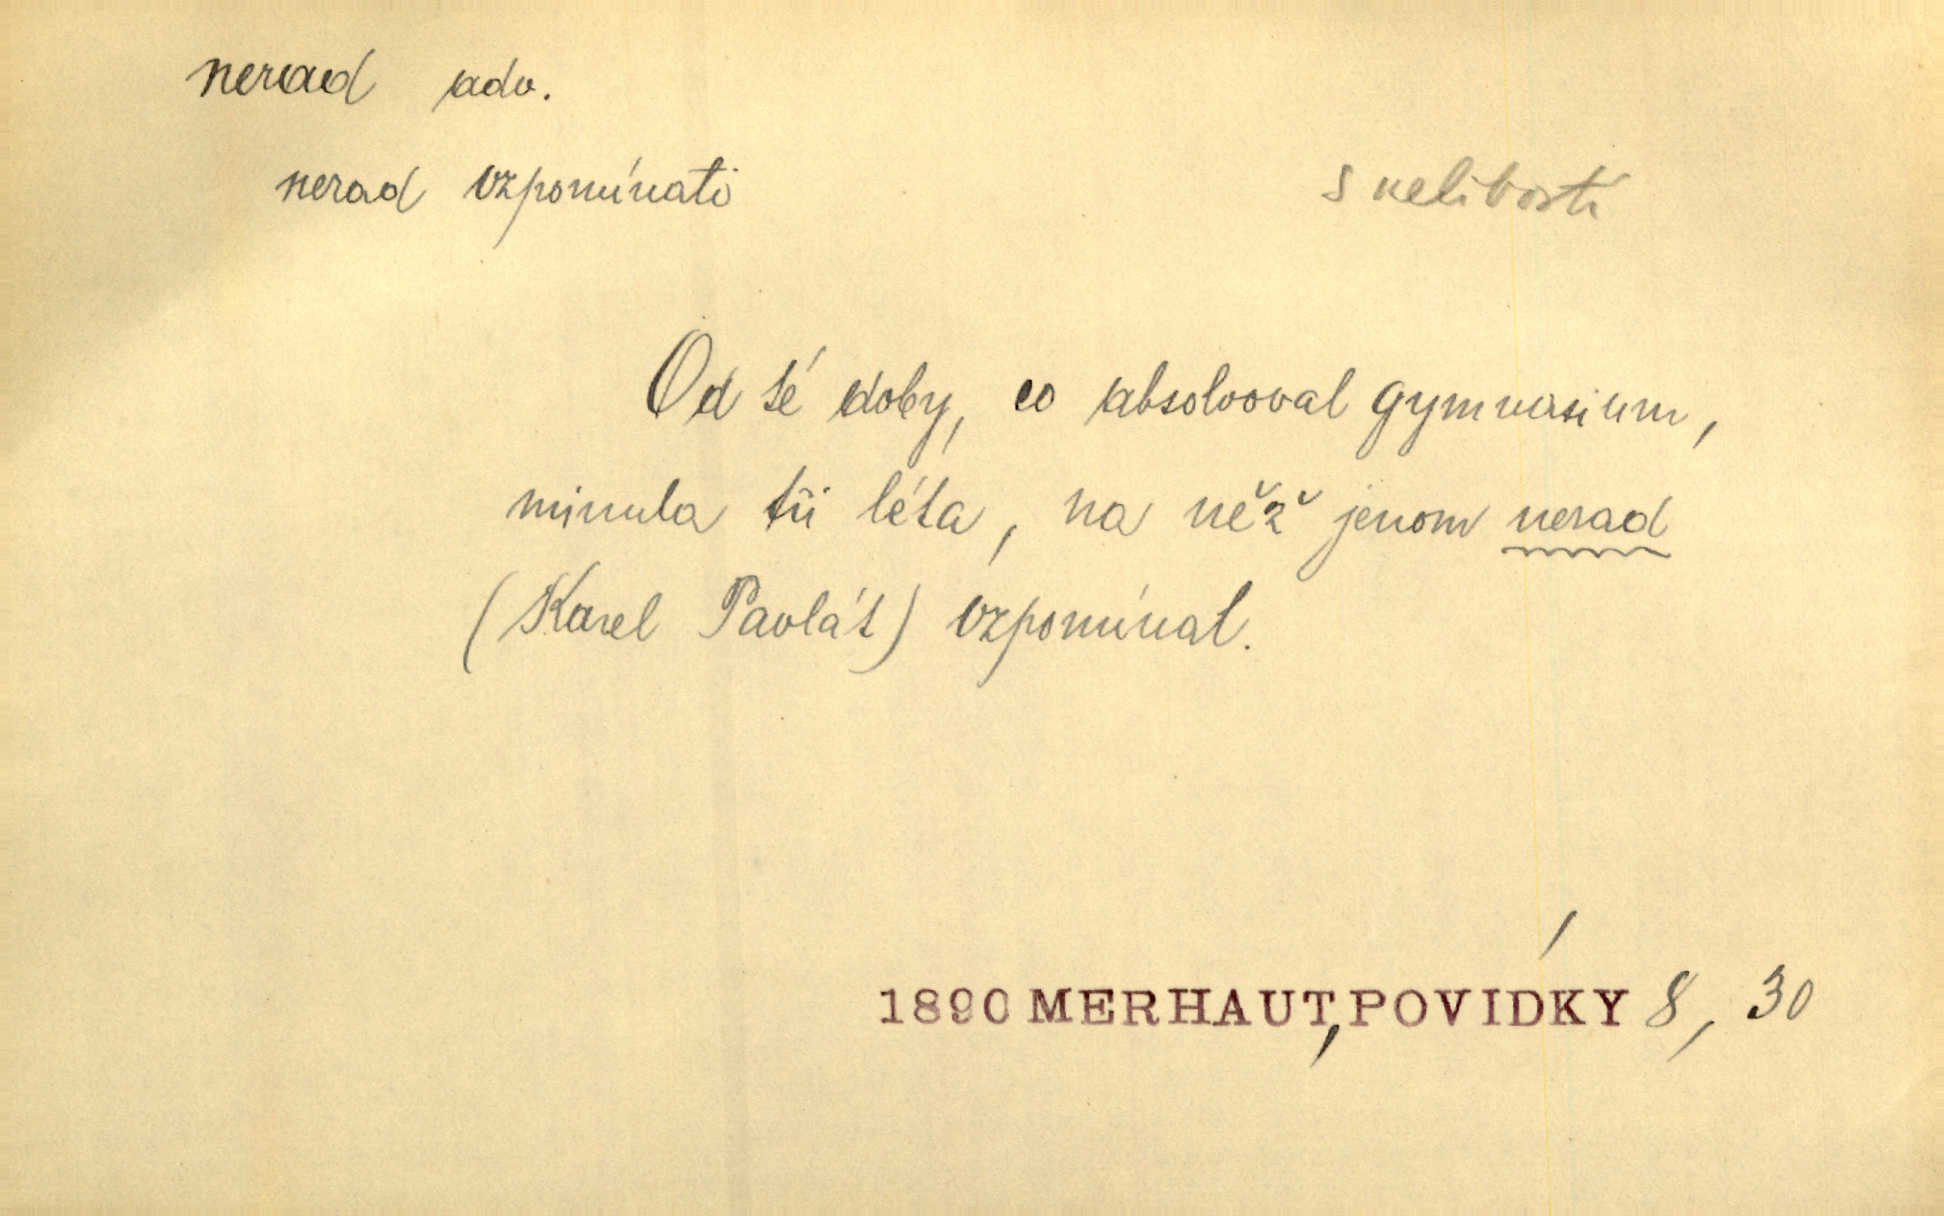 nerad adv.
nerad vzpomínati s nelibostí
Od té doby, co absolvoval gymnasium,
minula tři léta, na něž jenom nerad
(Karel Pavlát) vzpomínal.
1890 MERHAUT, POVÍDKY 8, 30